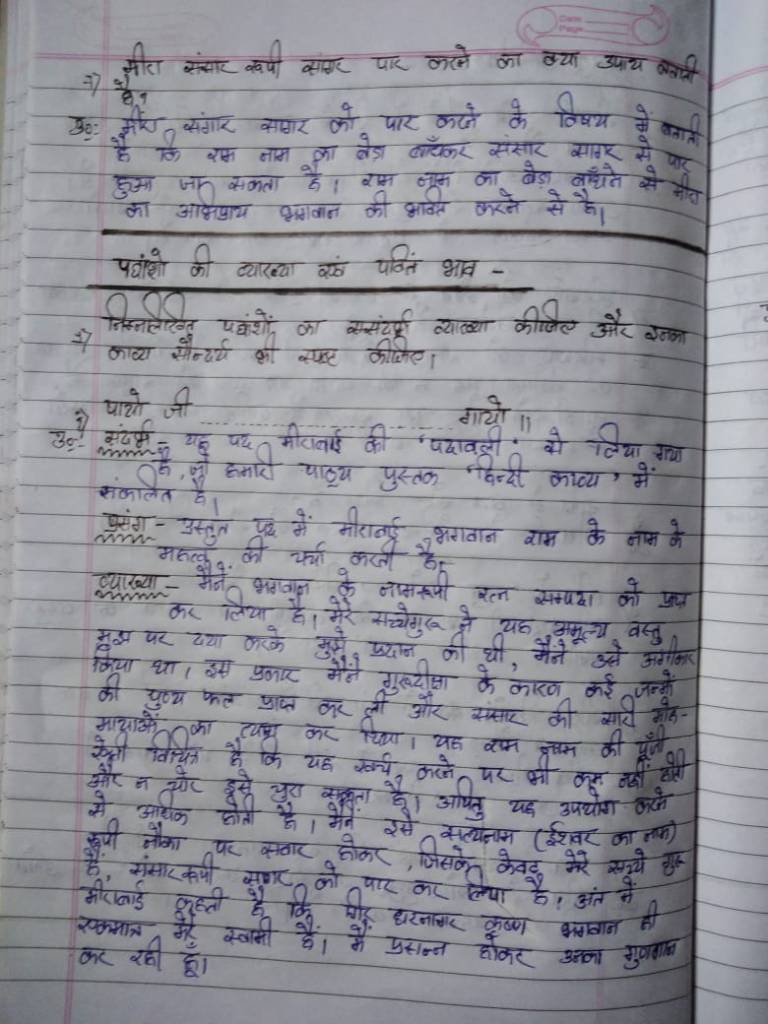 Date
Page
मीरा संसार रूपी सागर पार करने का क्या उपाय बताती
7) है?
उ०: मीरा संसार सागर को पार करने के विषय में बताती
है कि राम नाम का बेड़ा बाँधकर संसार सागर से पार
हुआ जा सकता है। राम नाम का बेड़ा बाँधने से मीरा
का अभिप्राय भगवान की भक्ति करने से है।
पद्यांशो की व्याख्या एवं पंक्ति भाव -
निम्नलिखित पद्यांशों का ससंदर्भ व्याख्या कीजिए और इनका
काव्य सौन्दर्य भी स्पष्ट कीजिए।
1) पायो जी ........................ गायो ॥
उ०: संदर्भ - यह पद मीराबाई की 'पदावली' से लिया गया
है, जो हमारी पाठ्य पुस्तक 'हिन्दी काव्य' में
संकलित है।
प्रसंग - प्रस्तुत पद में मीराबाई भगवान राम के नाम के
महत्व की चर्चा करती है।
व्याख्या - मैंने भगवान के नामरूपी रत्न सम्पदा को प्राप्त
कर लिया है। मेरे सच्चेगुरू ने यह अमूल्य वस्तु
मुझ पर दया करके मुझे प्रदान की थी, मैंने उसे अंगीकार
किया था। इस प्रकार मैंने गुरूदीक्षा के कारण कई जन्मों
की पुण्य फल प्राप्त कर ली और संसार की सारी मोह-
मायाओं का त्याग कर दिया। यह राम नाम की पूँजी
ऐसी विचित्र है कि यह खर्च करने पर भी कम नहीं होती
और न चोर इसे चुरा सकता है। अपितु यह उपयोग करने
से अधिक होती है। मैंने इसे सत्यनाम (ईश्वर का नाम)
रूपी नौका पर सवार होकर, जिसके केवट मेरे सच्चे गुरू
हैं, संसाररूपी सागर को पार कर लिया है। अंत में
मीराबाई कहती है कि गिरधरनागर कृष्ण भगवान ही
एकमात्र मेरे स्वामी हैं। मैं प्रसन्न होकर उनका गुणगान
कर रही हूँ।